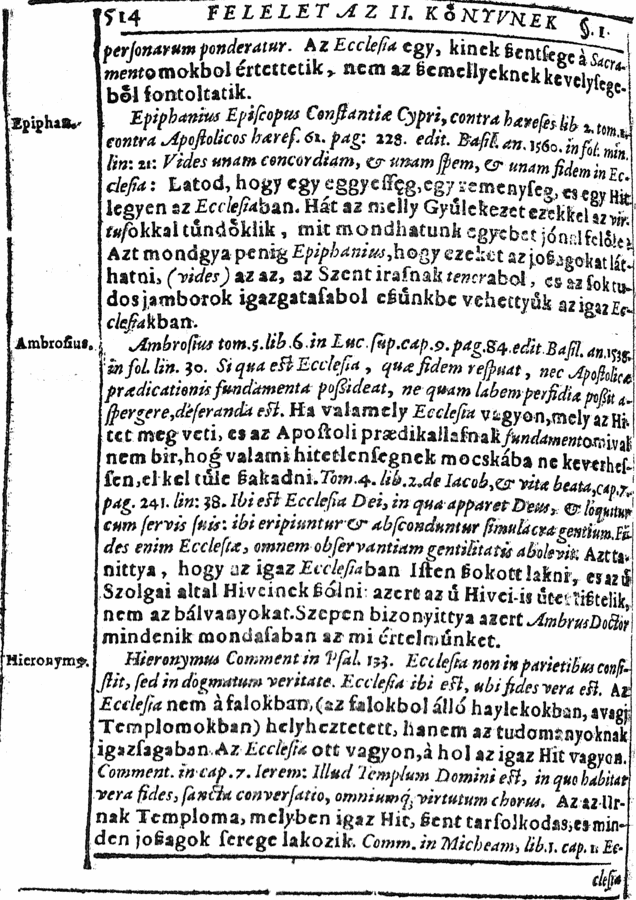 514 FELELET AZ II. KŐNYVNEK §. 1.
perſonarum ponderatur. Az Eccleſia egy, kinek ßentſege à Sacra-
mentomokbol értettetik, nem az ßemellyeknek kevelyſege-
ből fontoltatik.
Epiphan.
Epiphanius Epiſcopus Conſtantiæ Cypri, contra hæreſes lib 2. tom. 1.
contra Apoſtolicos hæreſ. 61. pag: 228. edit. Baſil. an. 1560. in fol. min.
lin: 21: Vides unam concordiam, & unam ſpem, & unam fidem in Ec-
cleſia: Latod, hogy egy eggyeſſeg, egy remenyſeg, es egy Hit
legyen az Eccleſiaban. Hát az melly Gyűlekezet ezekkel az vir-
tuſokkal tűndőklik, mit mondhatunk egyebet jónal felőle?
Azt mondgya penig Epiphanius, hogy ezeket az joßagokat lát-
hatni, (vides) az az, az Szent iraſnak tenorabol, es az ſoktu-
dos jamborok igazgataſabol eßűnkbe vehettyűk az igaz Ec-
cleſiakban.
Ambroſius.
Ambroſius tom. 5. lib. 6. in Luc. ſup. cap. 9. pag. 84. edit Baſil. an. 1538.
in fol. lin. 30. Si qua eſt Eccleſia, quæ fidem reſpuat, nec Apoſtolicæ
prædicationis fundamenta poßideat, ne quam labem perfidia poßit a-
ſpergere, deſeranda eſt. Ha valamely Eccleſia vagyon, mely az Hi-
tet meg veti, es az Apoſtoli prædikallaſnak fundamentomival
nem bir, hog valami hitetlenſegnek mocskába ne keverheſ-
ſen, el kel tűle ßakadni. Tom. 4. lib. 2. de Iacob, & vita beata, cap. 7.
pag. 241. lin: 38. Ibi eſt Eccleſia Dei, in qua apparet Deus, & loquitur
cum ſervis ſuis: ibi eripiuntur & abſconduntur ſimulacra gentium. Fi-
des enim Eccleſiæ, omnem obſervantiam gentilitatis abolevit. Azt ta-
nittya, hogy az igaz Eccleſiaban Iſten ßokott lakni, es az ű
Szolgai altal Hiveinek ßólni: azert az ű Hivei-is űtet tißtelik,
nem az bálvanyokat. Szepen bizonyittya azert Ambrus Doctor
mindenik mondaſaban az mi értelműnket.
Hieronymꝰ.
Hieronymus Comment in Pſal. 133. Eccleſia non in parietibus conſi-
ſtit, ſed in dogmatum veritate. Eccleſia ibi eſt, ubi fides vera eſt. Az
Eccleſia nem à falokban, (az falokbol álló haylekokban, avagy
Templomokban) helyheztetett, hanem az tudományoknak
igazſagaban. Az Eccleſia ott vagyon, à hol az igaz Hit vagyon.
Comment. in cap. 7. Ierem: Illud Templum Domini eſt, in quo habitat
vera fides, ſancta converſatio, omniumq́; virtutum chorus. Az az Ur-
nak Temploma, melyben igaz Hit, ßent tarſolkodas, es min-
den joßagok ſerege lakozik. Comm. in Micheam, lib. 1. cap. 1. Ec-
cleſia